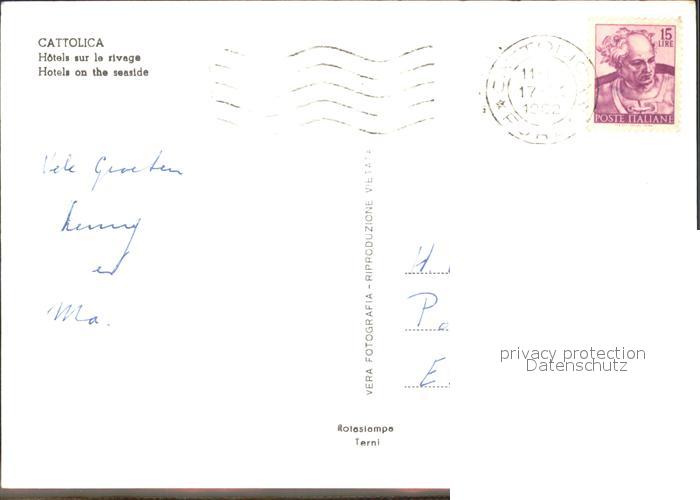 CATTOLICA
Hôtels sur le rivage
Hotels on the seaside
CATTOLICA
11-
17
1962
15
LIRE
POSTE ITALIANE
Vele Groeten
Henny
en
Ma.
VERA FOTOGRAFIA - RIPRODUZIONE VIETATA
H.
P
E
privacy protection
Datenschutz
Rotastampa
Terni